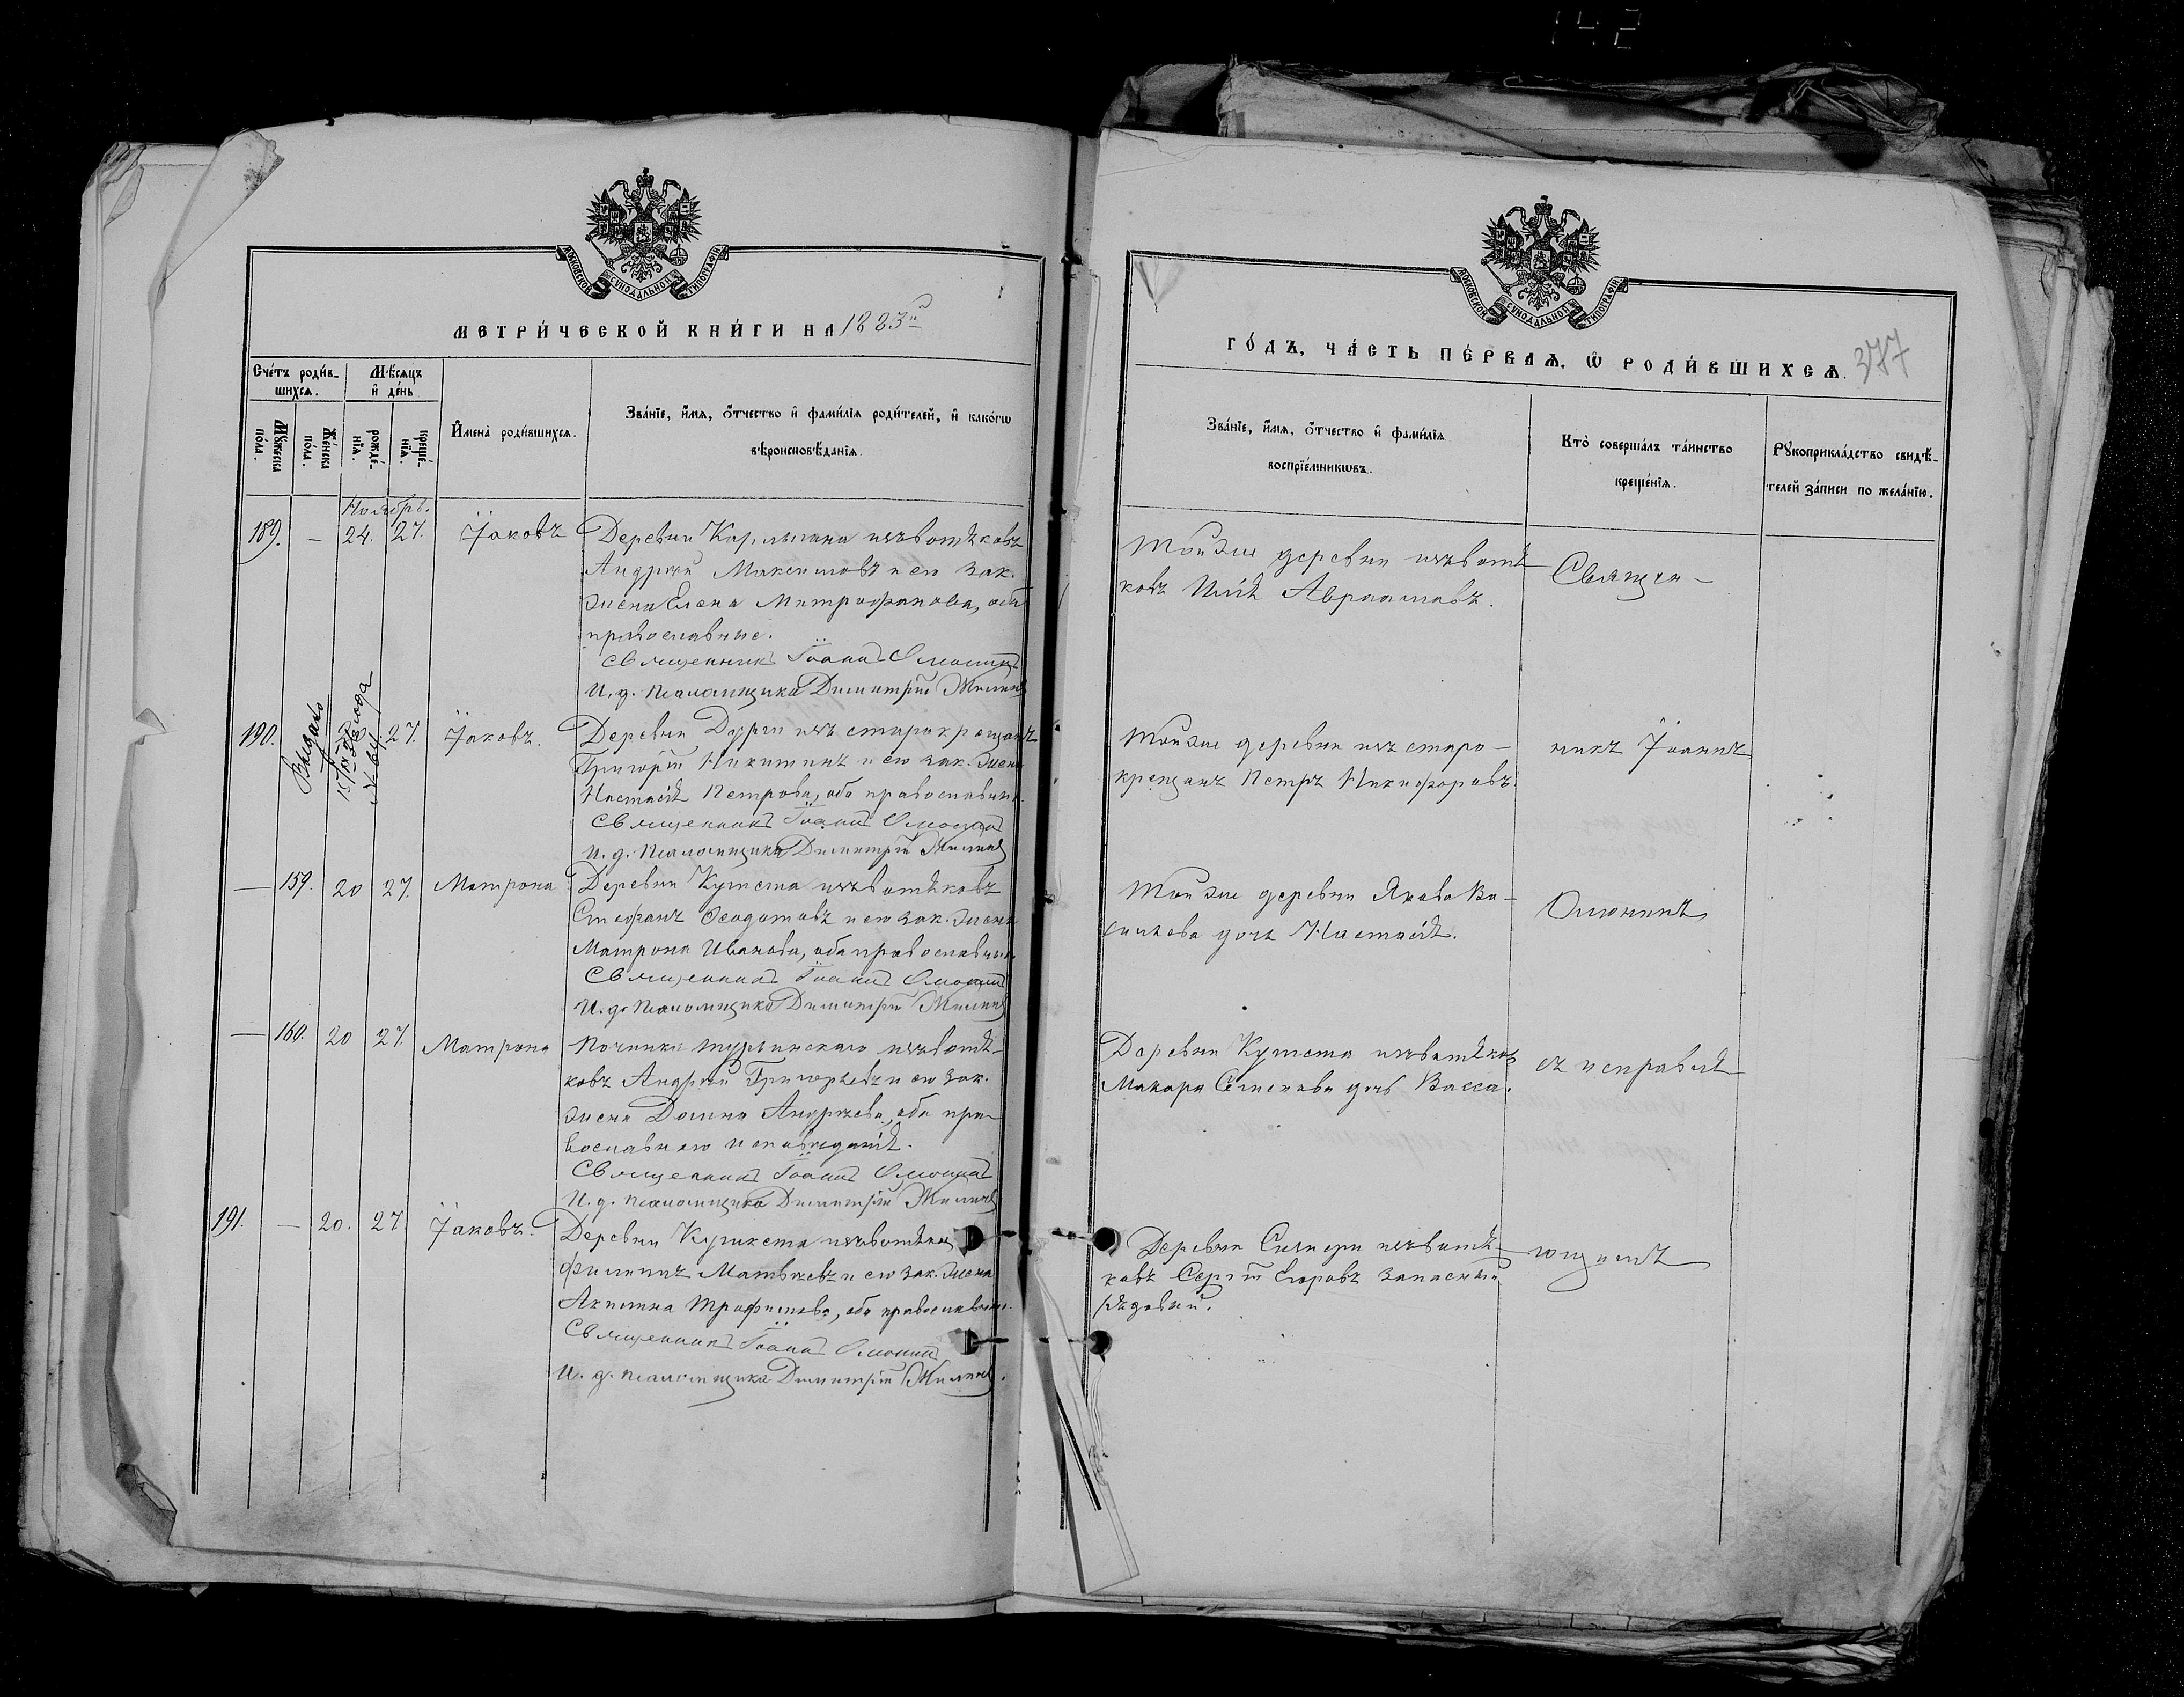 142
МОСКОВСКОЙ СѴНОДАЛЬНОЙ ТИПОГРАФІИ
МЕТРИ́ЧЕСКОЙ КНИ́ГИ НА 1883й
Сче́тъ роди́в-
шихсѧ.
Мѣ́сѧцъ
и҆ де́нь
Мꙋ́жеска
по́ла.
Же́нска
по́ла.
рожде́-
нїѧ.
креще́-
нїѧ.
И҆мена̀ роди́вшихсѧ.
Зва́нїе, и҆́мѧ, ѻ҆́тчество и҆ фами́лїѧ роди́телей, и҆ како́гѡ
вѣроисповѣ́данїѧ.
Ноябрь.
189. — 24. 27. Іаковъ Деревни
изъ вотяковъ
Андрей Максимовъ и его зак.
жена Елена Митрофанова, оба
православные.
Священникъ Іоаннъ
И. д. псаломщика Димитрій
190. 27. Іаковъ. Деревни Дурги изъ старокрещенъ
Выдано
Григорій Никитинъ и его зак. жена
Настасія Петрова, оба православные.
Священникъ Іоаннъ
И. д. псаломщика Димитрій
— 159. 20 27. Матрона Деревни Кутета изъ вотяковъ
Стефанъ Ѳеодотовъ и его зак. жена
Матрона Иванова, оба православные.
Священникъ Іоаннъ
И. д. псаломщика Димитрій
— 160. 20 27. Матрона Починка изъ вотя-
ковъ Андрей Григорьевъ и его зак.
жена Домна Андреева, оба пра-
вославнаго исповеданія.
Священникъ Іоаннъ
И. д. псаломщика Димитрій
191. — 20. 27. Іаковъ. Деревни изъ вотяковъ
Филиппъ Матвеевъ и его зак. жена
Акилина Трофимова, оба православные.
Священникъ Іоаннъ
И. д. псаломщика Димитрій
МОСКОВСКОЙ СѴНОДАЛЬНОЙ ТИПОГРАФІИ
ГО́ДЪ, ЧА́СТЬ ПЕ́РВАѦ, Ѡ҆ РОДИ́ВШИХСѦ.
377
Зва́нїе, и҆́мѧ, ѻ҆́тчество и҆ фами́лїѧ
воспрїе́мникѡвъ.
Кто̀ соверша́лъ та́инство
креще́нїѧ.
Рꙋкоприкла́дство свидѣ́-
телей за́писи по жела́нїю.
Той же деревни изъ вотя-
ковъ Илія Авраамовъ.
Священ-
Той же деревни изъ старо-
крещенъ Петръ Никифоровъ.
никъ Іоаннъ
Той же деревни Якова Ва-
сильева дочь Настасія.
Деревни Кутета изъ вотяковъ
Макара Семенова дочь Васса.
съ исправля-
Деревни изъ вотя-
ковъ Сергій Егоровъ запасный
рядовой.
ющимъ